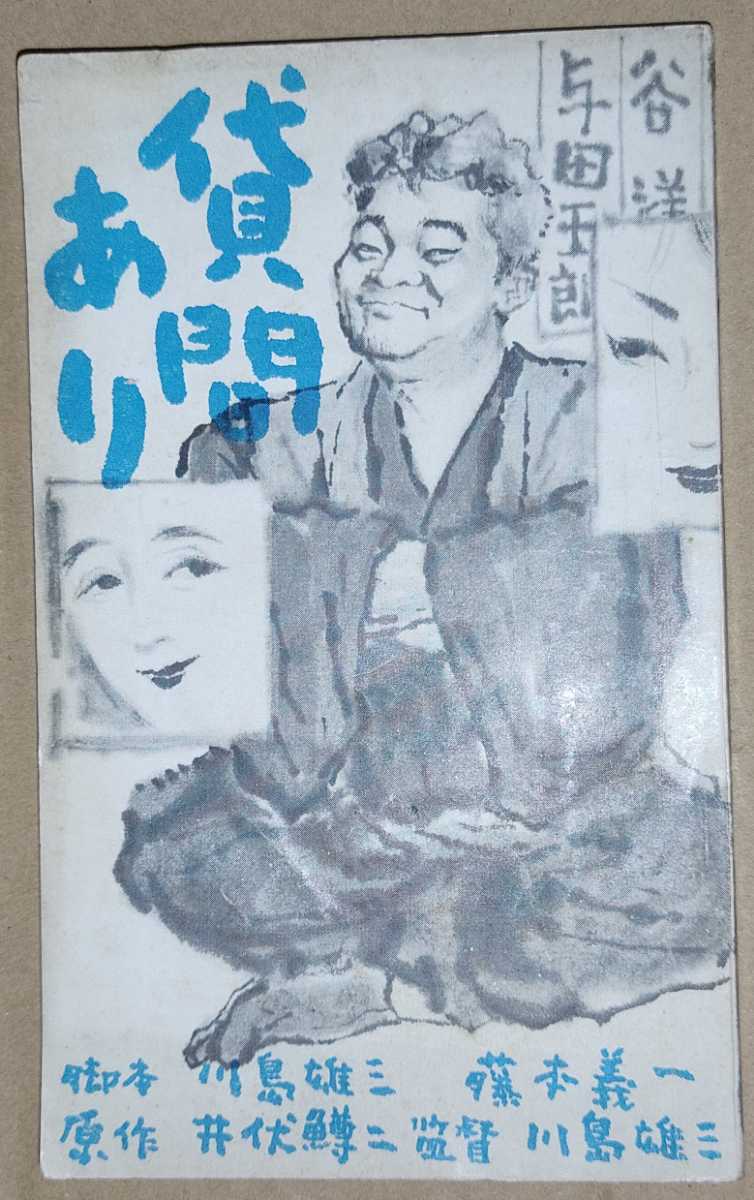 貸間
あり
谷洋
与田五郎
脚本 川島雄三 藤本義一
原作 井伏鱒二 監督 川島雄三